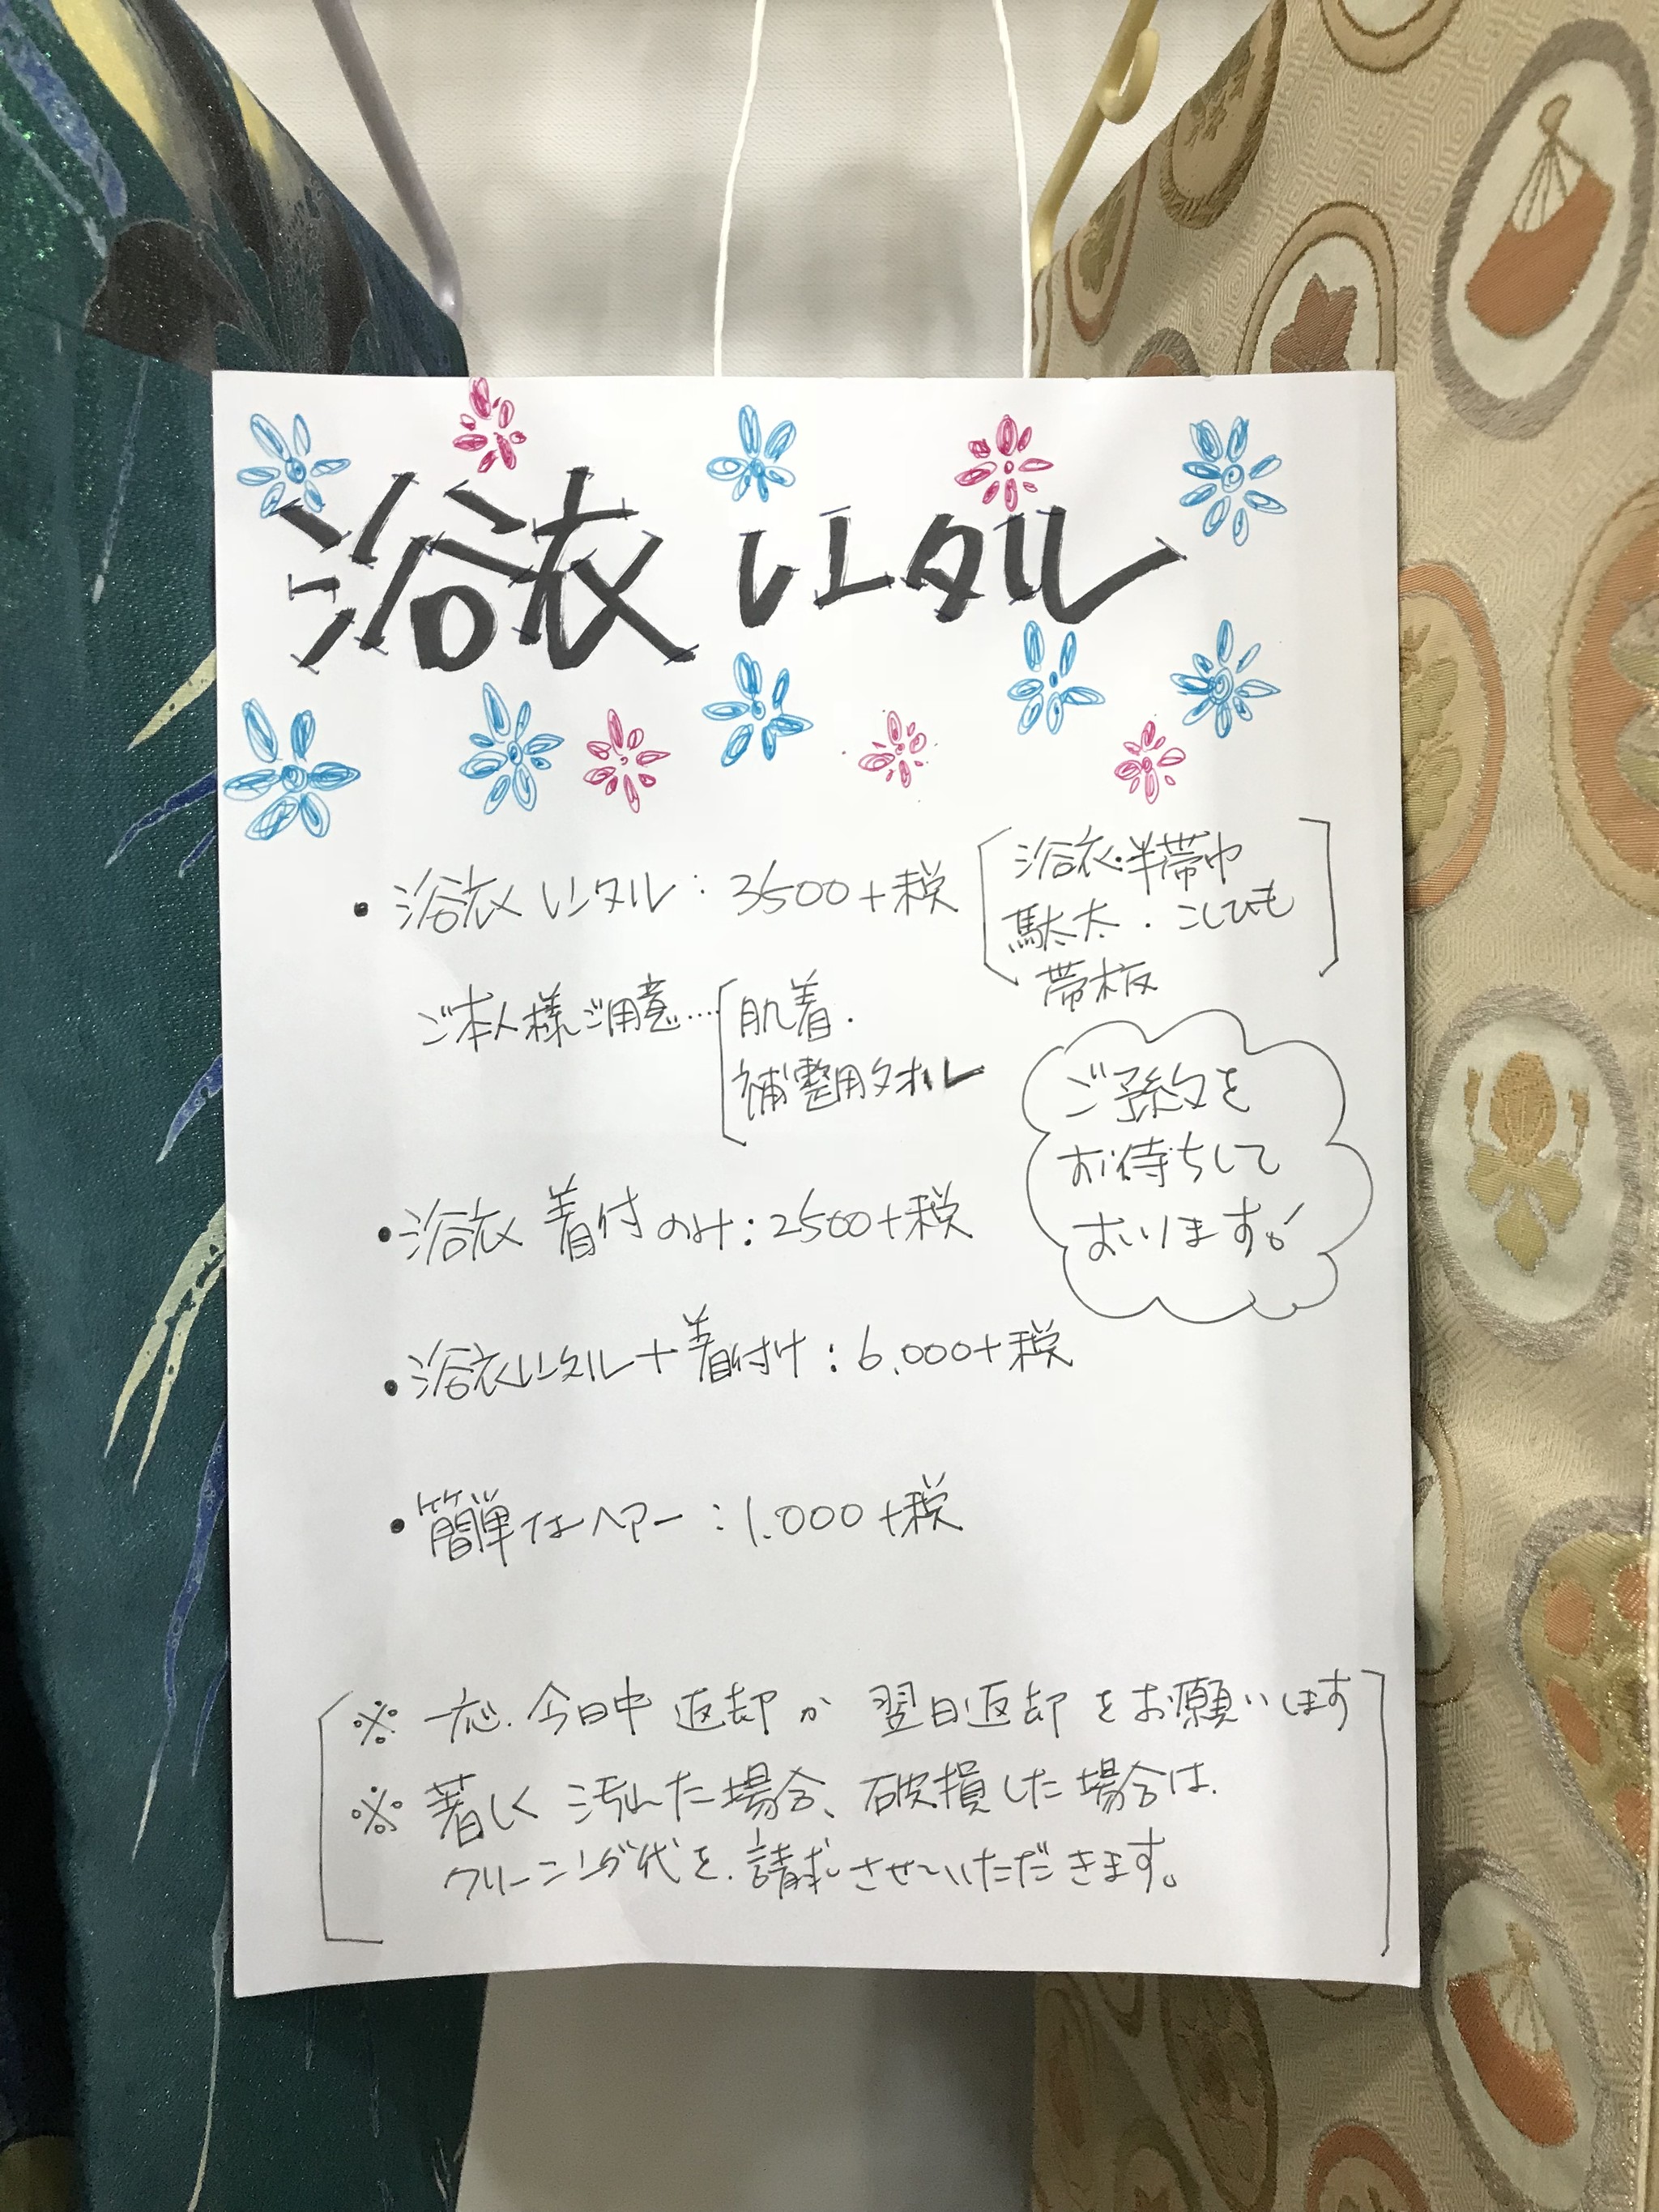 浴衣 レンタル
・浴衣 レンタル：3500+税
浴衣・半帯巾
駄太太．こしひも
帯板
ご本人様ご用意…
肌着．
補整用タオル
ご予約を
お待ちして
おります！
・浴衣 着付のみ：2500+税
・浴衣レンタル＋着付け：6.000+税
・簡単なヘアー：1.000+税
※ 一応．今日中 返却 か 翌日返却 をお願いします
※ 著しく 汚れた場合、破損した場合は．
クリーニング代を．請求させていただきます。